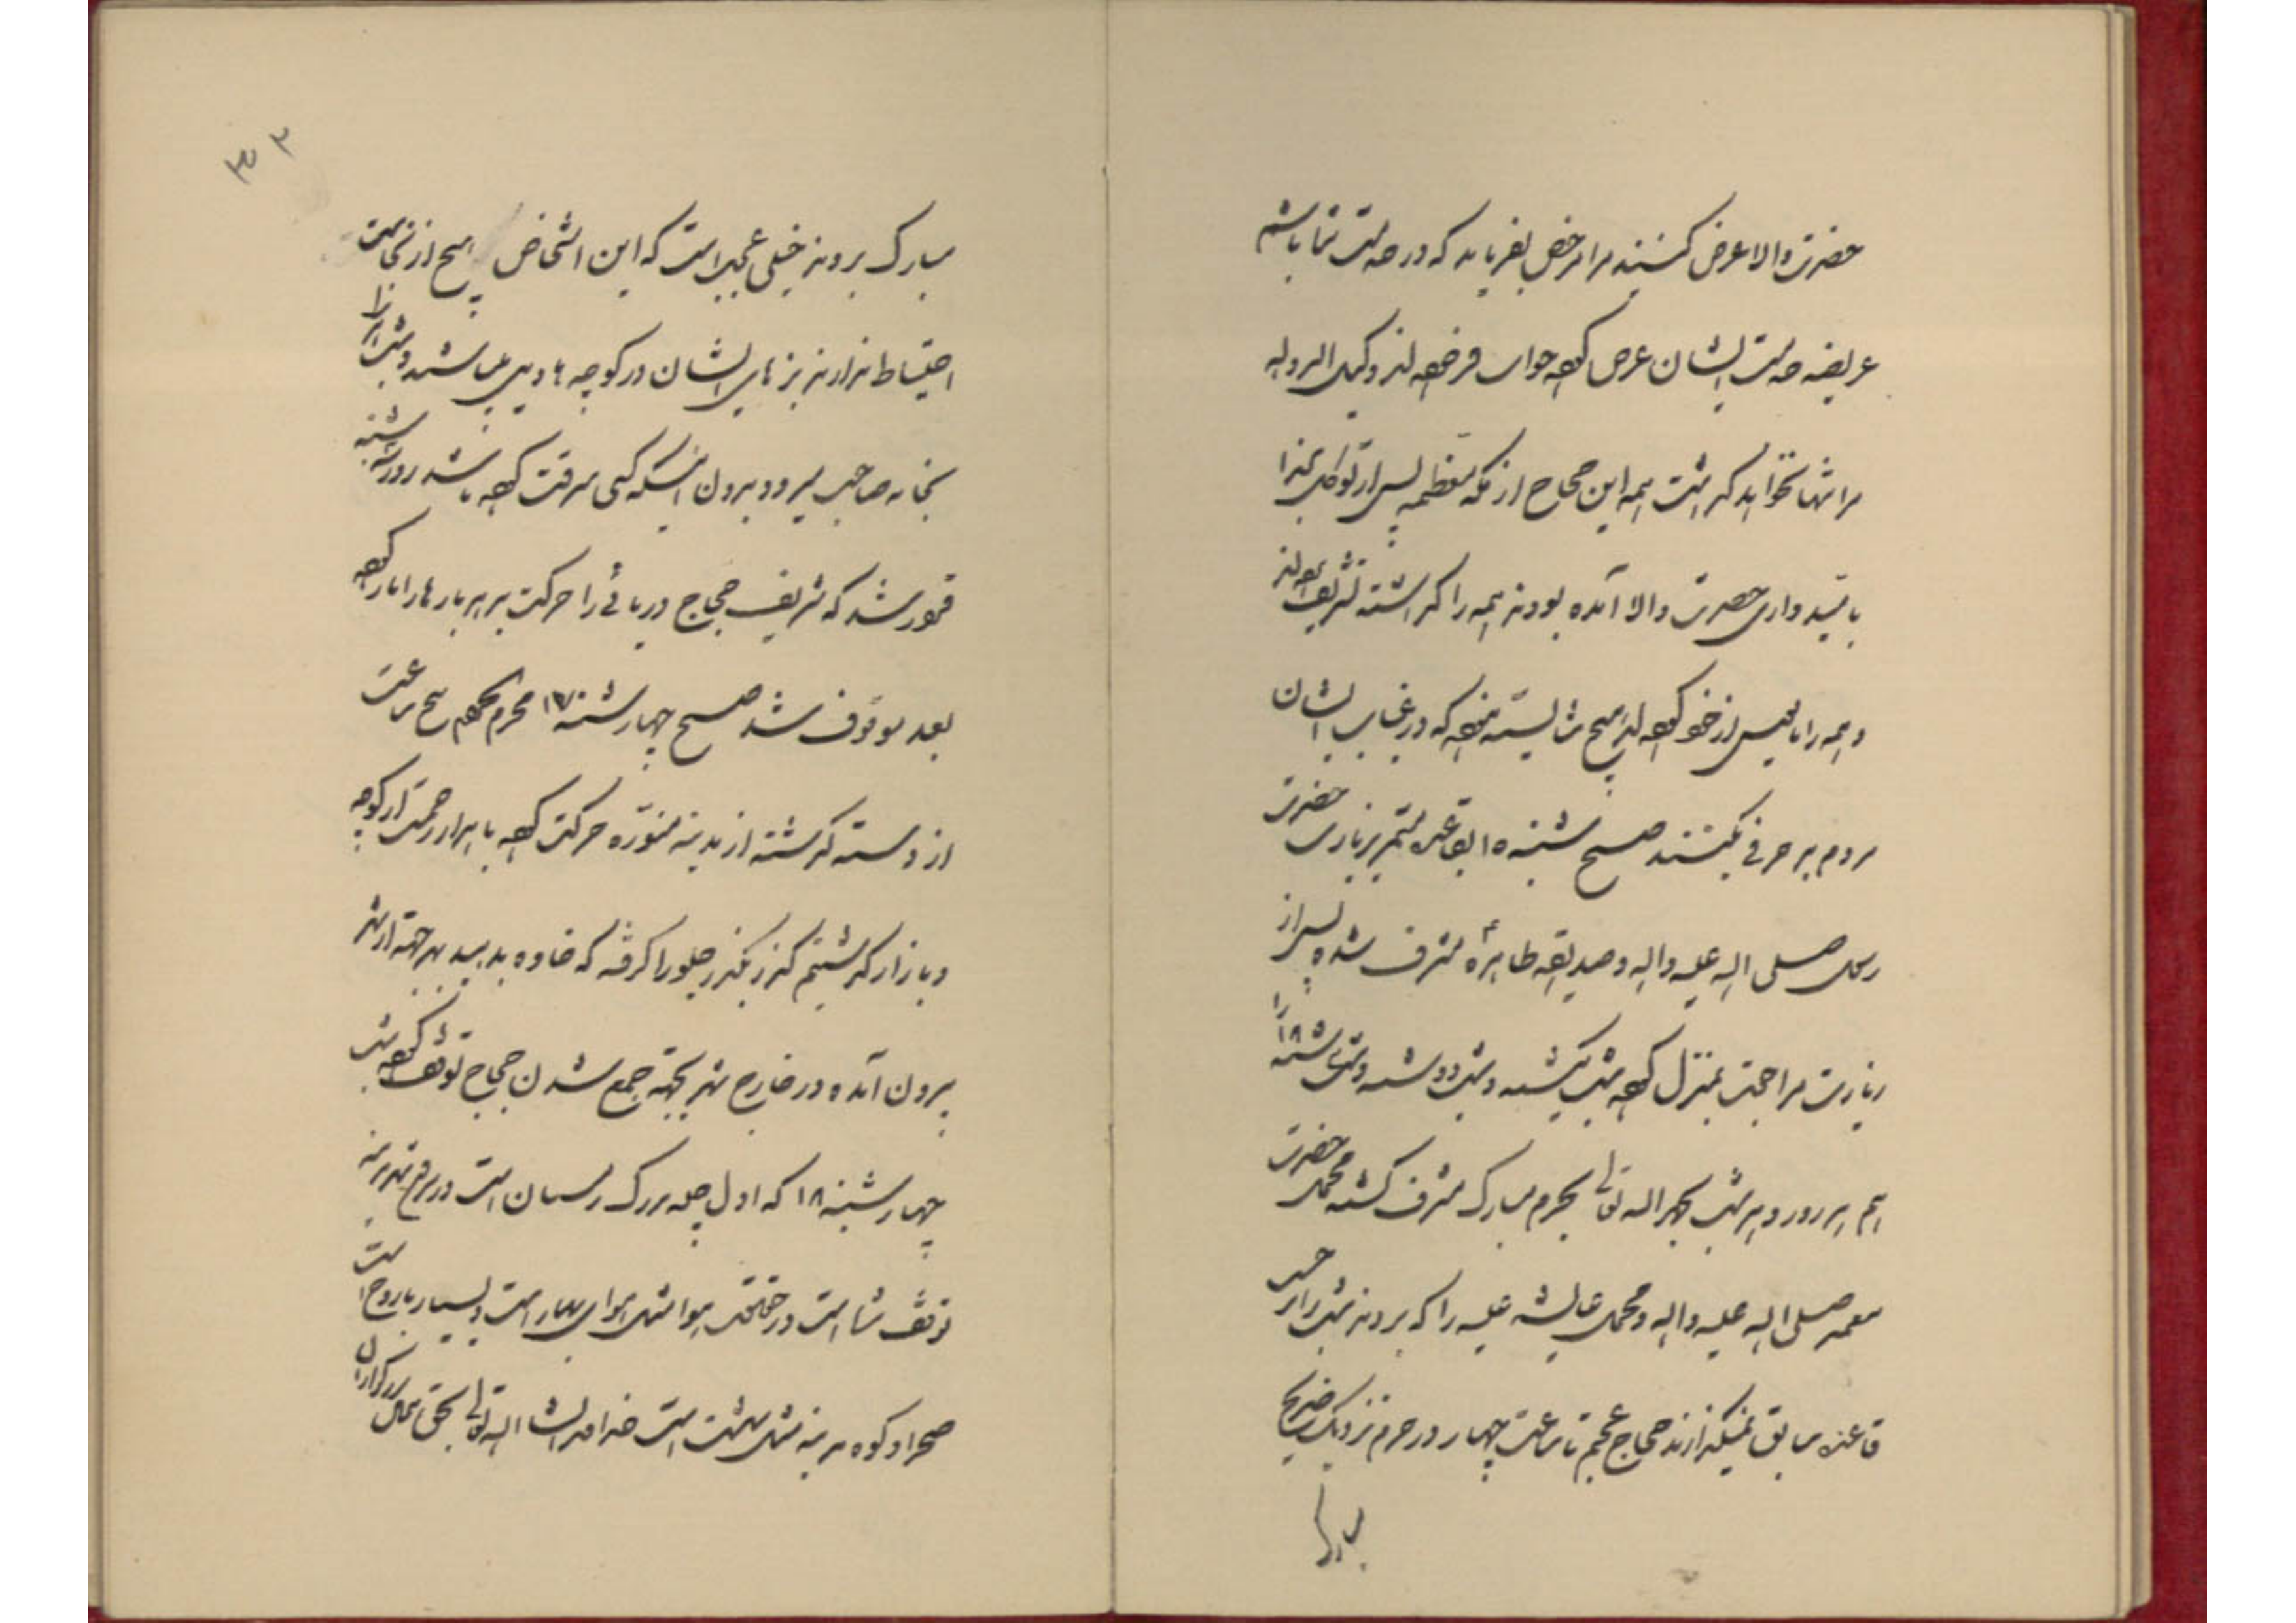 حضرت والا عرض کنند مرا مرخص بفرماید که در خدمت شما باشم
عریضه خدمت ایشان عرض کرده جواب فرموده‌اند وکیل الدوله
مرا تنها نخواهد گذاشت همه این حجاج از مکه معظمه پس از توکل بخدا
بامیدواری حضرت والا آمده بودند همه را گذاشته تشریف برده‌اند
و همه را مأیوس از خود کرده‌اند هیچ شایسته نبود که در غیاب ایشان
مردم بد حرفی بکنند صبح شنبه ۱۵ بقاعده مستمر بزیارت حضرت
رسول صلی الله علیه واله و صدیقه طاهره ع مشرف شده پس از
زیارت مراجعت بمنزل کرده شب یکشنبه و شب دوشنبه و شب سه‌شنبه ۱۸ را
هم هر روز و هر شب بحمد الله تعالی بحرم مبارک مشرف گشته محمل حضرت
صلی الله علیه واله و محمل عایشه علیه را که بردند شب را بر حسب
قاعده سابق نمیگذارند حجاج عجم تا ساعت چهار در حرم نزدیک ضریح
مبارک بروند خیلی عجیب است که این اشخاص هیچ از نجاست
احتیاط ندارند بزهای ایشان در کوچه‌ها ویل میباشند و شب را
بخانه صاحب میرود بدون اینکه کسی سرقت کرده باشد روز سه شنبه
قرار شد که شریف حجاج دریائی را حرکت بدهد بارها را بار کرده
بعد موقوف شد صبح چهارشنبه ۱۷ محرم الحرام پنج ساعت
از دسته گذشته از مدینه منوره حرکت کرده با هزار زحمت از کوچه
و بازار گذشتیم گذر بگذر جلو را گرفته که خاوه بدهید بهر جهة از شهر
بیرون آمده در خارج شهر بجهة جمع شدن حجاج توقف کرده شب
چهارشنبه ۱۸ که اول چله بزرگ زمستان است در بیرون مدینه
توقف شد است در حقیقت هوا مثل هوای بهار است و بسیار با روح است
صحرا و کوه مدینه مثل بهشت است خداوند انشاءالله تعالی بحق بزرگواران